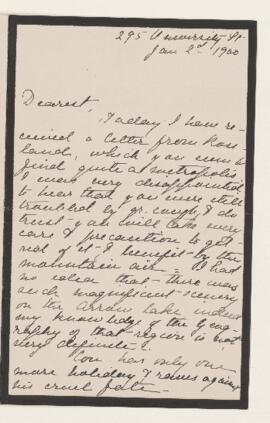 295 University St.
Jan 2nd 1900
Dearest,
Today I have re-
ceived a letter from Ross-
land, which you must
find quite a metropolis
I was very disappointed
to hear that you were still
troubled by yr. cough, I do
trust you will take every
care & precaution to get
rid of it & benefit by the
mountain air. I had
no idea that there was
such magnificent scenery
on the Arrow Lake indeed
my knowledge of the Geog-
raphy of that region is not
very definite.
Con. has only one
more holiday & raves against
his cruel fate.